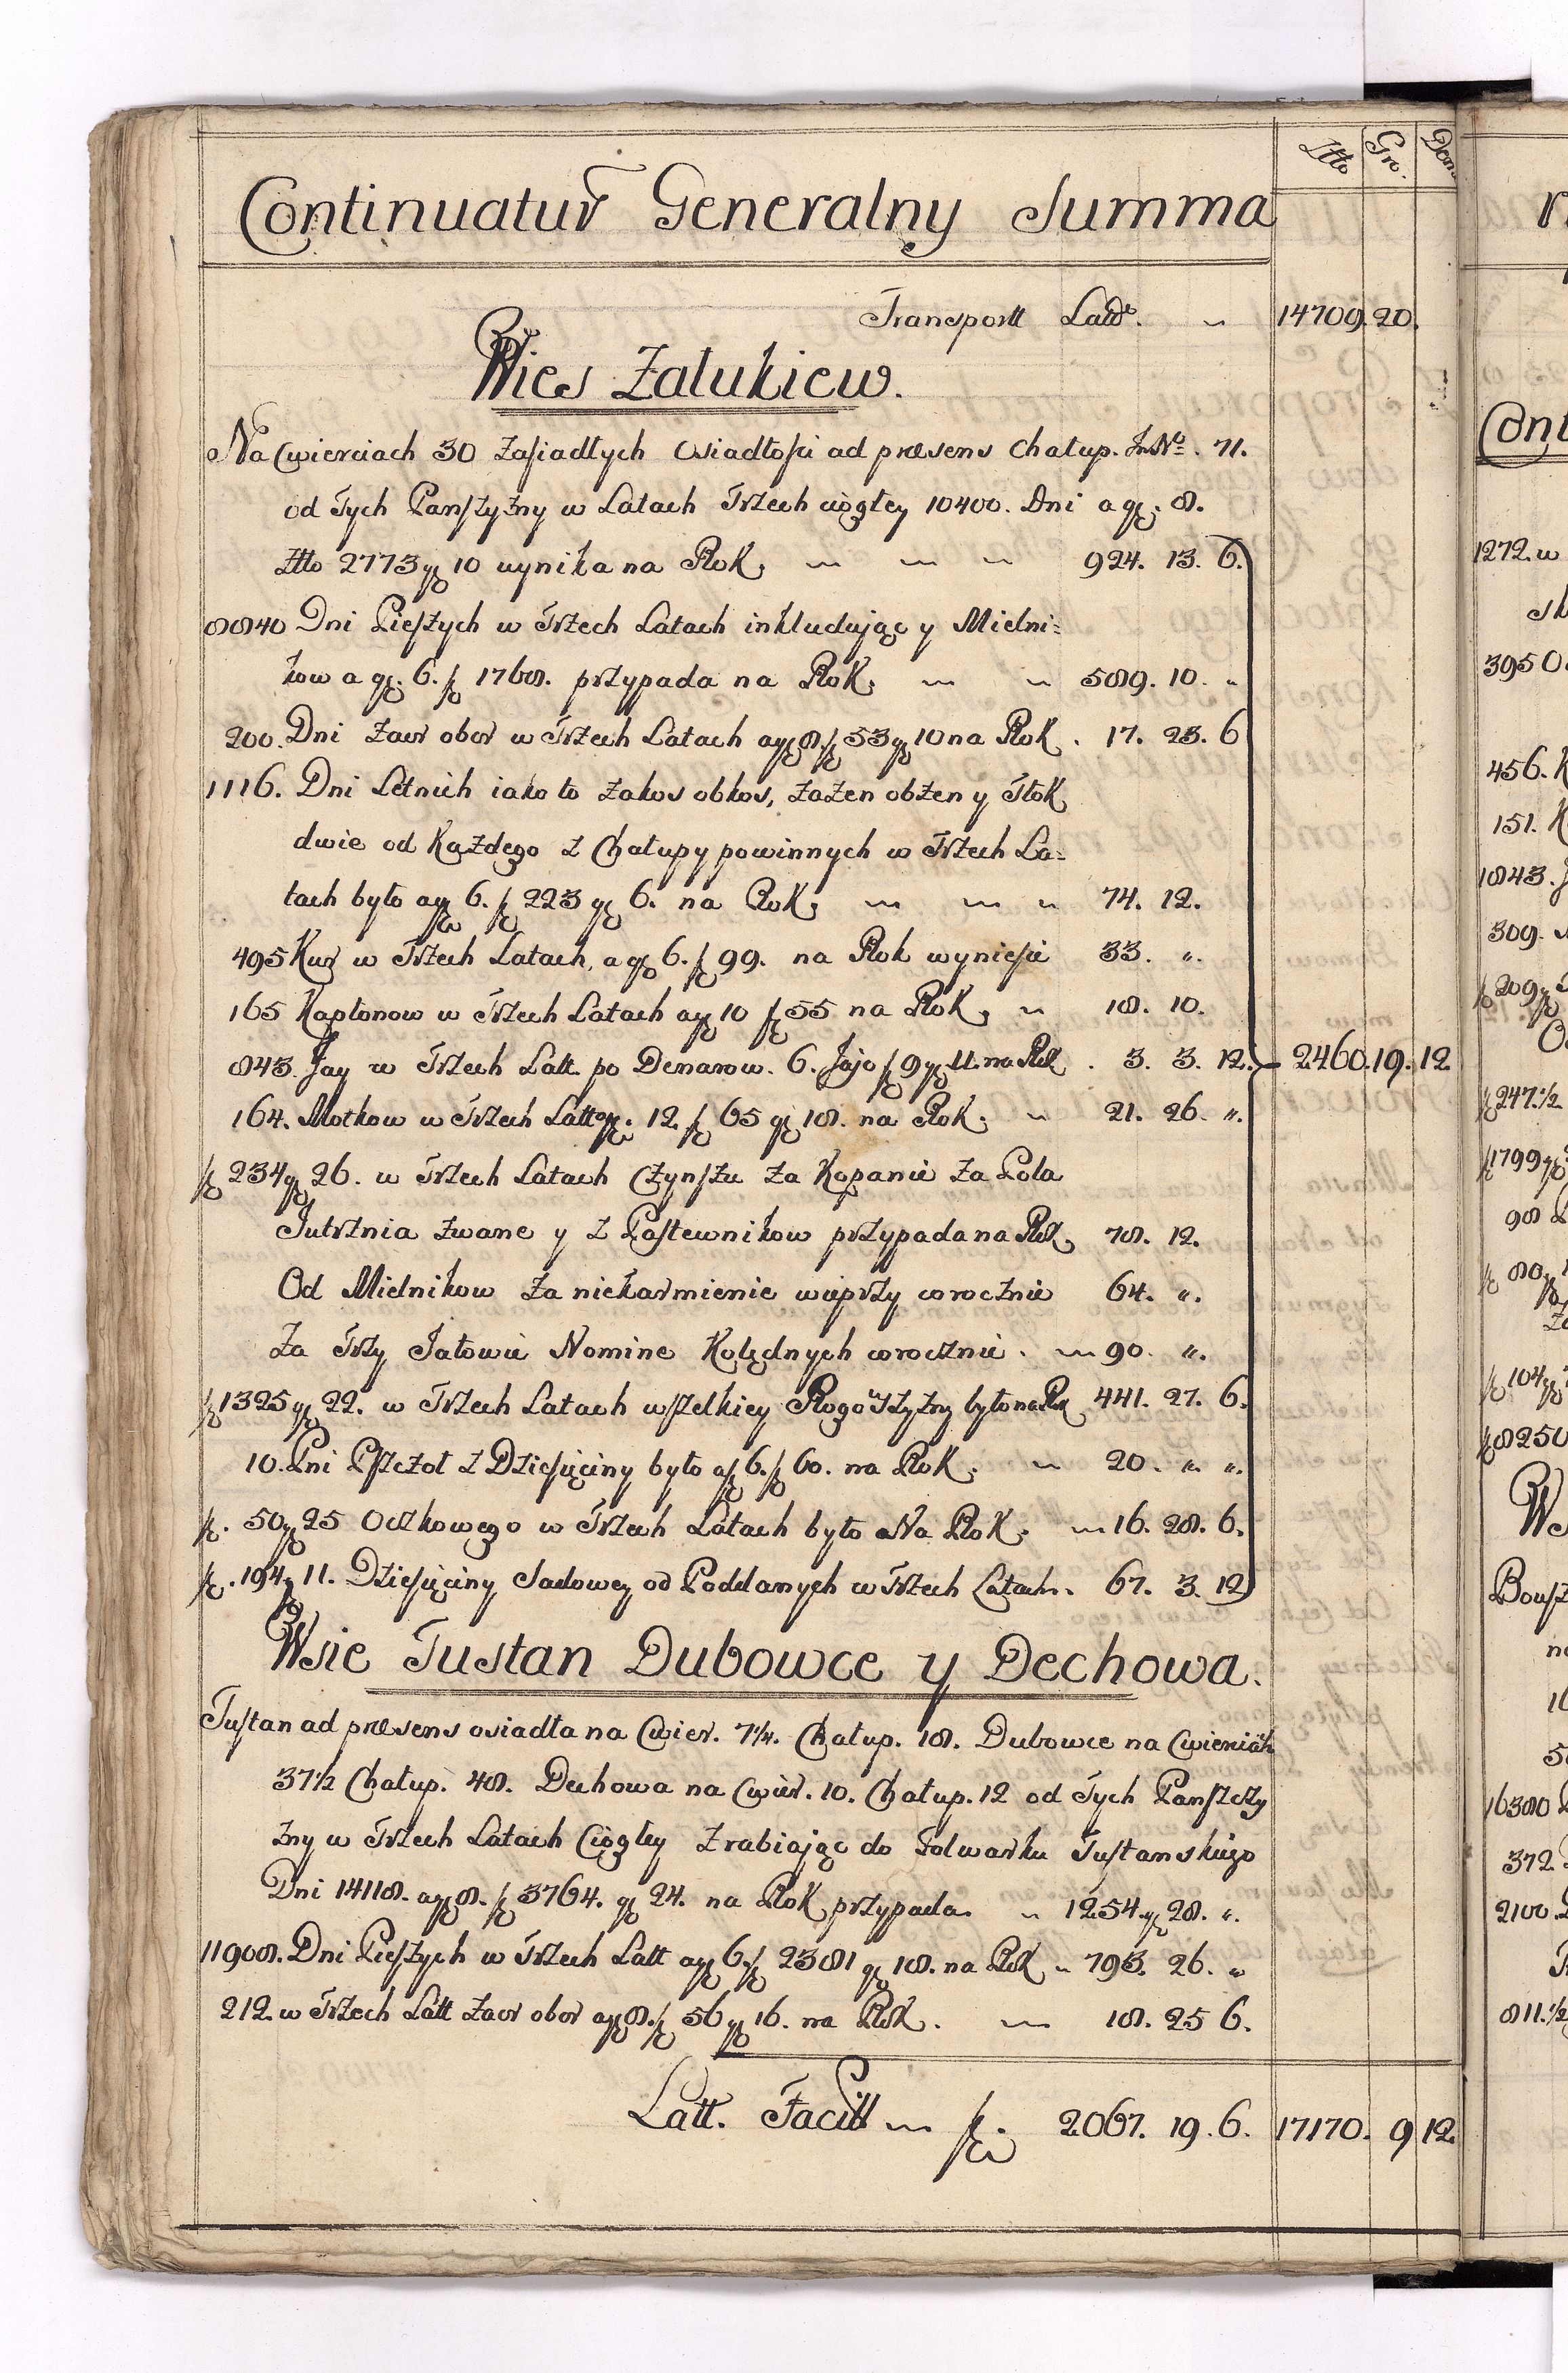 Złło Gr. Den.
Continuatur Generalny Summa
Transportt Latt. 14709. 20.
Wies Załukiew.
Na Cwierciach 30 zasiadłych Osiadłosci ad præsens Chałup. In No. 71.
od Tych Panszyzny w Latach Trzech ciągłey 10400. Dni a gr. 8.
Złło 2773 gr 10 wynika na Rok 924. 13. 6.
8840 Dni Pieszych w Trzech Latach inkludując y Mielni-
kow a gr. 6. fl 1768. przypada na Rok 589. 10. "
200. Dni zaor obor w Trzech Latach a gr 8. fl 53 gr 10 na Rok. 17. 23. 6
1116. Dni Letnich iako to zakos obkos, zażen obżen y Tłok
dwie od Każdego z Chałupy powinnych w Trzech La-
tach było a gr 6. fl 223 gr 6. na Rok 74. 12.
495 Kur w Trzech Latach, a gr 6. fl 99. na Rok wyniesie 33. ".
165 Kapłonow w Trzech Latach a gr 10 fl 55 na Rok 18. 10.
843. Jay w Trzech Latt. po Denarow. 6. Jajo fl 9 gr 11. na Rok. 3. 3. 12. 2460. 19. 12
164. Motkow w Trzech Latt a gr. 12. fl 65 gr 18. na Rok. 21. 26. ".
fl 234 gr 26. w Trzech Latach Czynszu za Kopanie za Pola
Jutrznia zwane y z Pastewnikow przypada na Rok 78. 12.
Od Mielnikow za niekarmienie wieprzy corocznie 64. ".
Za Trzy Jałowic Nomine Kolędnych corocznie. 90. ".
fl 1325 gr 22. w Trzech Latach wszelkiey Rogowszyzny było na Rok 441. 27. 6.
10. Pni Pszczoł z Dziesięciny było a fl 6. fl 60. na Rok. 20. ". ".
fl. 50 gr 25 Oczkowego w Trzech Latach było Na Rok. 16. 28. 6.
fl. 194 gr 11. Dziesięciny Sadowey od Poddanych w Trzech Latach. 67. 3. 12
Wsie Tustan Dubowce y Dechowa.
Tustan ad præsens osiadła na Cwier. 7¼. Chałup. 18. Dubowce na Cwierciach
37½ Chałup. 48. Dechowa na Cwier. 10. Chałup. 12 od Tych Panszczy
zny w Trzech Latach Ciągłey zrabiając do Folwarku Tustanskiego
Dni 14118. a gr 8. fl 3764. gr 24. na Rok przypada 1254. gr 28. ".
11908. Dni Pieszych w Trzech Latt a gr 6. fl 2381 gr 18. na Rok 793. 26. "
212. w Trzech Latt zaor obor a gr 8. fl 56 gr 16. na Rok. 18. 25 6.
Latt. Facitt fl. 2067. 19. 6. 17170. 9 12.
Cont
1272. w
395
456. K
151. K
1843. J
309.
fl 209 gr
fl 247.½
fl 1799 gr
98
fl 80
fl 104
fl 8250
Bousz
16380
372.
2100.
811.½